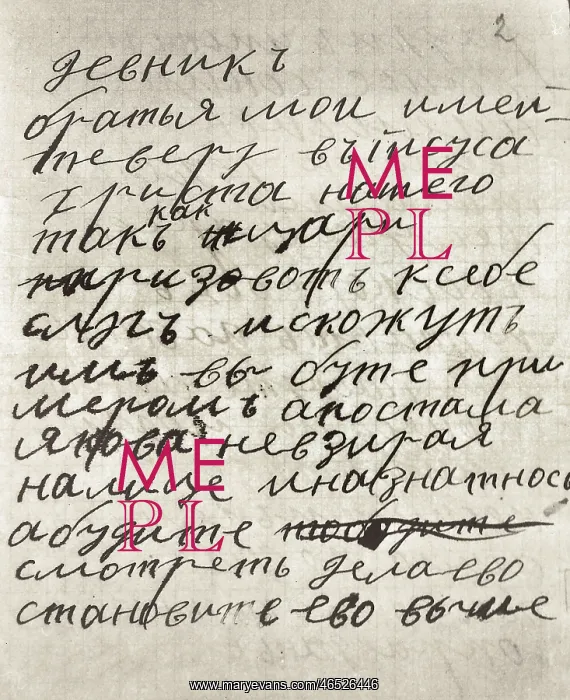 2
девникъ
братья мои имей-
теверу въіисуса
Христа нашего
как
такъ цари
призовотъ ксебе
слугъ искожутъ
имъ вы буте при
меромъ апостала
Якова невзирая
налице инаазнатность
абудите
смотреть делаево
становите ево выше
ME PL
ME PL
www.maryevans.com/46526446